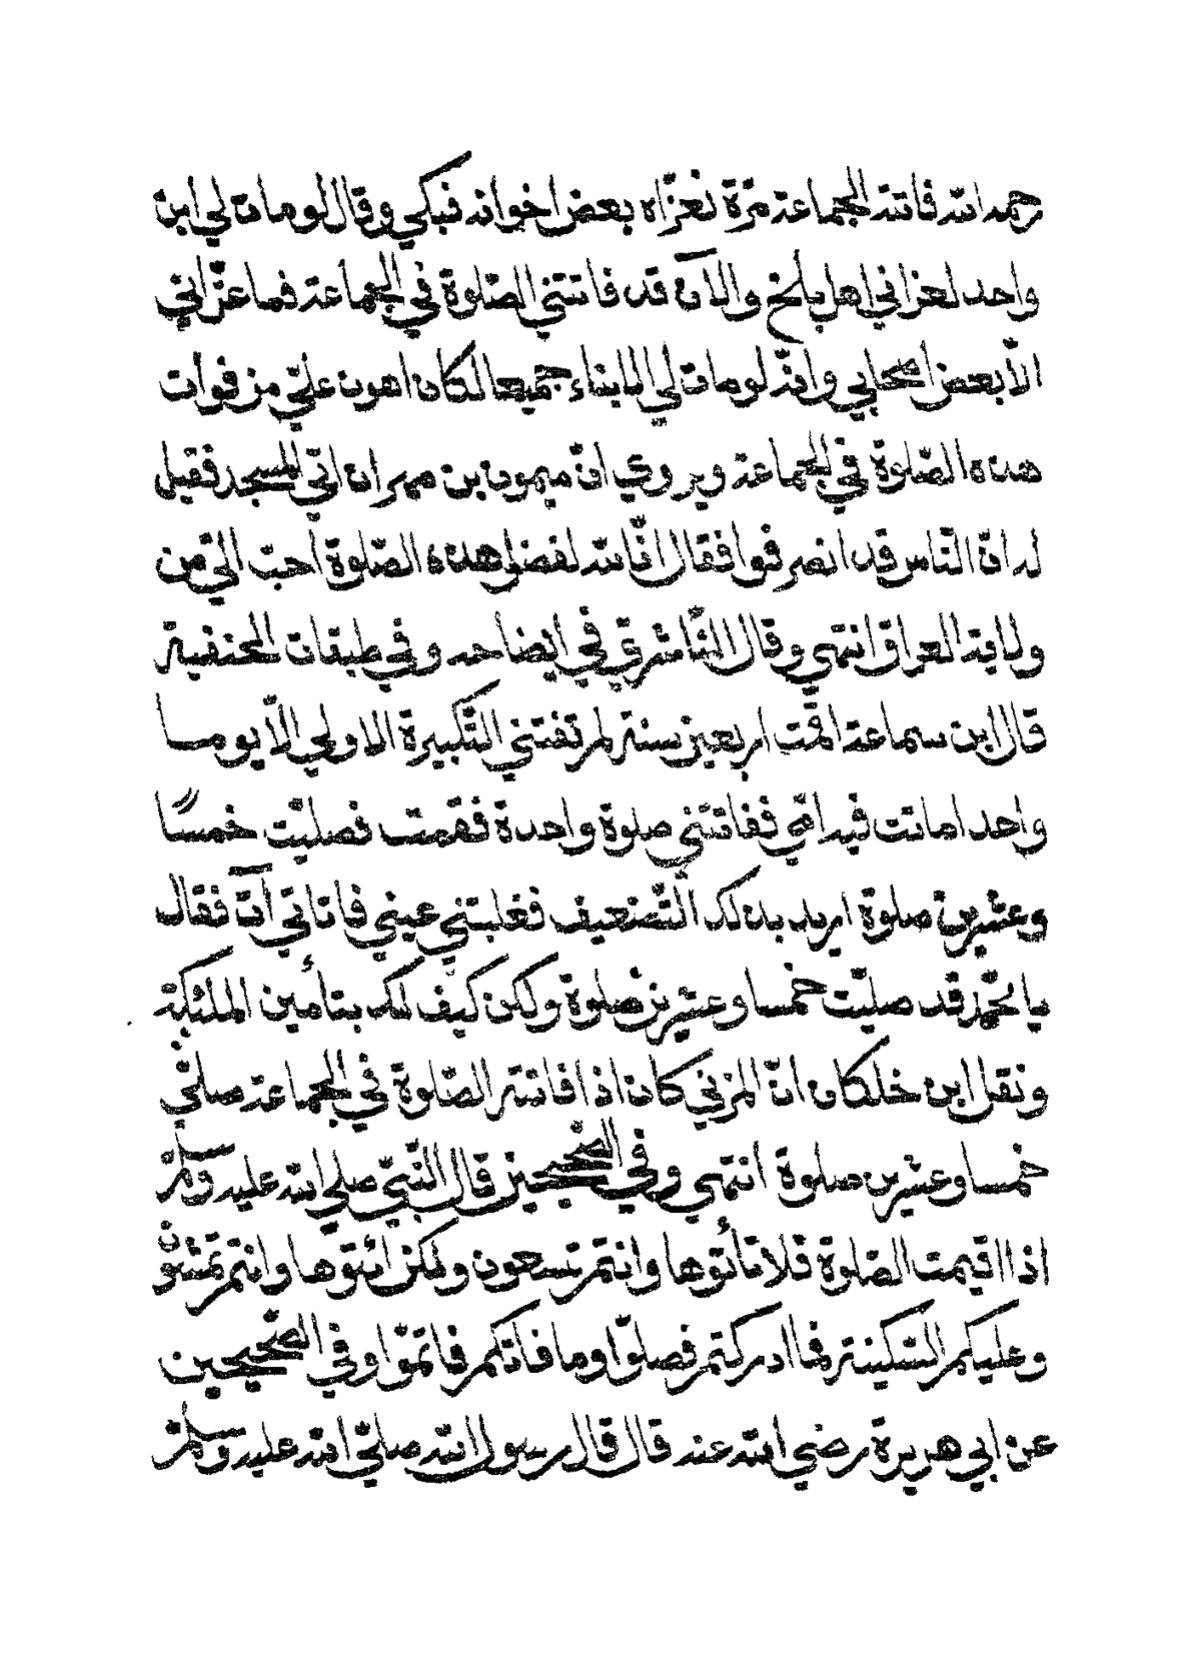 رحمه الله فاتته الجماعة مرّة فعزّاه بعض اخوانه فبكي وقال لو مات لي ابن
واحد لعزاني اهل بلخ والآن قد فاتتني الصّلوة في الجماعة فما عزّاني
الّا بعض اصحابي وانّه لو مات لي الابناء جميعا لكان اهون عليّ من فوات
هذه الصّلوة في الجماعة ويروي انّ ميمون بن مهران اتي المسجد فقيل
له انّ النّاس قد انصرفوا فقال انّا لله لفضل هذه الصّلوة احبّ اليّ من
ولاية العراق انتهي وقال الثّاشري في ايضاحه وفي طبقات الحنفية
قال ابن سماعة اقمت اربعين سنة لم تفتني التّكبيرة الاولي الّا يوما
واحدا ماتت فيه امّي ففاتتني صلوة واحدة فقمت فصليّت خمسًا
وعشرين صلوة اريد بذلك التّضعيف فغلبتني عيني فاتاني آتٍ فقال
يا محّمد قد صليّت خمسا وعشرين صلوة ولكن كيف لك بتأمين الملئكة
ونقل ابن خلكان انّ المزني كان اذا فاتته الصّلوة في الجماعة صلّي
خمسا وعشرين صلوة انتهي وفي الصّحيحين قال النّبيّ صلي الله عليه وسلّم
اذا اقيمت الصّلوة فلا تأتوها وانتم تسعون ولكن ائتوها وانتم تمشون
وعليكم السّكينة فما ادركتم فصلّوا وما فاتكم فاتمّوا وفي الصّحيحين
عن ابي هريرة رضي الله عنه قال قال رسول الله صلّي الله عليه وسلّم